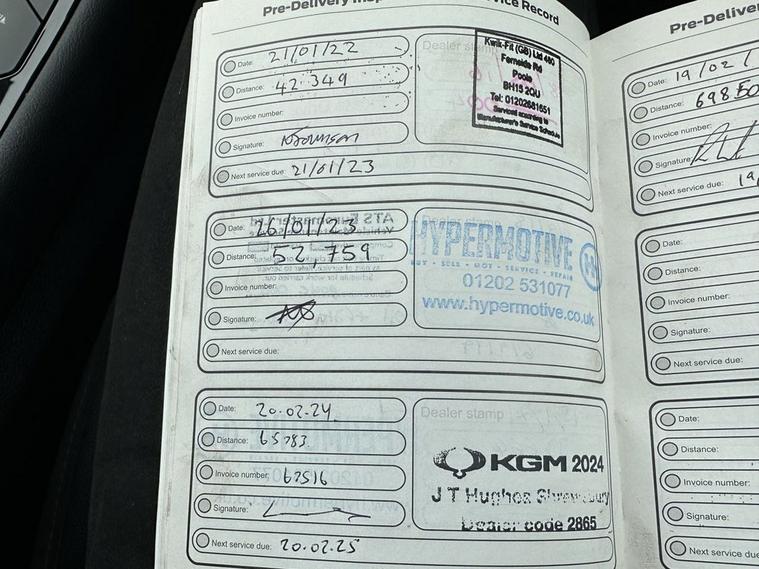 Pre-Delivery
Service Record
Date: 21/01/22
Distance: 42 349
Invoice number:
Signature:
Next service due: 21/01/23
Dealer stamp
Kwik-Fit (GB) Ltd 460
Fernside Rd
Poole
BH15 2QU
Serviced according to
Manufacturer's Service Schedule
Date: 26/01/23
Distance: 52,759
Invoice number:
Signature:
Next service due:
Dealer stamp
HYPERMOTIVE
BUY - SELL - MOT - SERVICE - REPAIR
01202 531077
www.hypermotive.co.uk
Date: 20.02.24
Distance: 65783
Invoice number: 67516
Signature:
Next service due: 20.02.25
Dealer stamp
KGM 2024
J T Hughes Shrewsbury
Dealer code 2865
Pre-Deliver
Date: 19/02/
Distance:
Invoice number:
Signature:
Next service due:
Date:
Distance:
Invoice number:
Signature:
Next service due:
Date:
Distance:
Invoice number:
Signature:
Next service due: